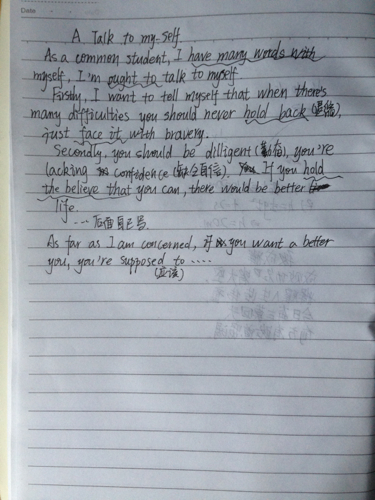 Date
A Talk to my-self
As a common student, I have many words with
myself, I'm ought to talk to myself
Firstly, I want to tell myself that when there's
many difficulties you should never hold back (退缩),
just face it with bravery.
Secondly, you should be dilligent (勤奋), you're
lacking confedence (缺乏自信). If you hold
the believe that you can, there would be better
life.
... 后面自己写
As far as I am concerned, if you want a better
you, you're supposed to ....
(应该)